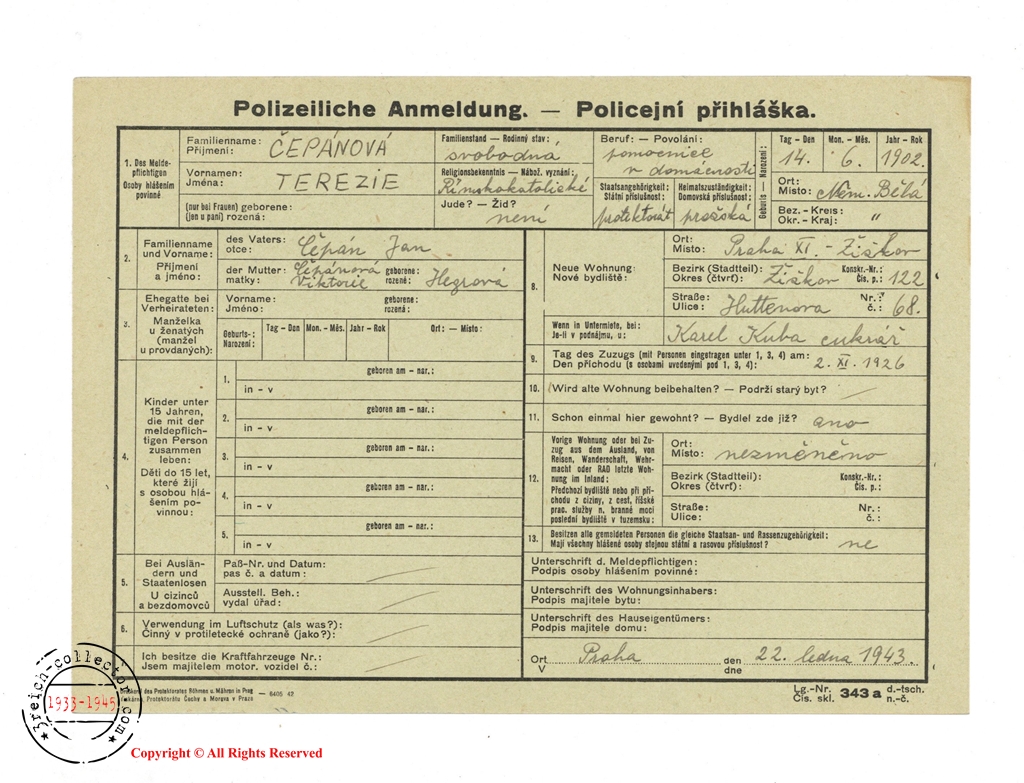 Polizeiliche Anmeldung. — Policejní přihláška.
1. Des Melde-
pflichtigen
Osoby hlášením
povinné
Familienname:
Příjmení: ČEPÁNOVÁ
Vornamen:
Jména: TEREZIE
(nur bei Frauen) geborene:
(jen u paní) rozená:
Familienstand — Rodinný stav:
svobodná
Religionsbekenntnis — Nábož. vyznání:
Římskokatolické
Jude? — Žid?
není
Beruf: — Povolání:
pomocnice
v domácnosti
Staatsangehörigkeit:
Státní příslušnost:
protektorát
Heimatszuständigkeit:
Domovská příslušnost:
pražská
Geburts — Narození:
Tag - Den Mon. - Měs. Jahr - Rok
14. 6. 1902.
Ort:
Místo: Něm. Bělá
Bez. - Kreis:
Okr. - Kraj: "
2. Familienname
und Vorname:
Příjmení
a jméno:
des Vaters:
otce: Čěpán Jan
der Mutter: Čěpánová geborene:
matky: Viktorie rozené: Hegrová
3. Ehegatte bei
Verheirateten:
Manželka
u ženatých
(manžel
u provdaných):
Vorname: geborene:
Jméno: rozená:
Geburts-:
Narození:
Tag — Den Mon. - Měs. Jahr — Rok Ort: — Místo:
4. Kinder unter
15 Jahren,
die mit der
meldepflich-
tigen Person
zusammen
leben:
Děti do 15 let,
které žijí
s osobou hlá-
šením po-
vinnou:
1. geboren am - nar.:
in - v
2. geboren am - nar.:
in - v
3. geboren am - nar.:
in - v
4. geboren am - nar.:
in - v
5. geboren am - nar.:
in - v
5. Bei Auslän-
dern und
Staatenlosen
U cizinců
a bezdomovců
Paß-Nr. und Datum:
pas č. a datum:
Ausstell. Beh.:
vydal úřad:
6. Verwendung im Luftschutz (als was?):
Činný v protiletecké ochraně (jako?):
Ich besitze die Kraftfahrzeuge Nr.:
Jsem majitelem motor. vozidel č.:
8. Neue Wohnung:
Nové bydliště:
Ort:
Místo: Praha XI. - Žižkov
Bezirk (Stadtteil): Konskr.-Nr.:
Okres (čtvrť): Žižkov Čís. p.: 122
Straße: Nr.:
Ulice: Huttenova č.: 68.
Wenn in Untermiete, bei:
Je-li v podnájmu, u: Karel Kuba cukrář
9. Tag des Zuzugs (mit Personen eingetragen unter 1, 3, 4) am:
Den příchodu (s osobami uvedenými pod 1, 3, 4): 2. XI. 1926
10. Wird alte Wohnung beibehalten? — Podrží starý byt?
11. Schon einmal hier gewohnt? — Bydlel zde již? ano
12. Vorige Wohnung oder bei Zu-
zug aus dem Ausland, von
Reisen, Wanderschaft, Wehr-
macht oder RAD letzte Woh-
nung im Inland:
Předchozí bydliště nebo při pří-
chodu z ciziny, z cest, říšské
prac. služby n. branné moci
poslední bydliště v tuzemsku:
Ort:
Místo: nezměněno
Bezirk (Stadtteil): Konskr.-Nr.:
Okres (čtvrť): Čís. p.:
Straße: Nr.:
Ulice: č.:
13. Besitzen alle gemeldeten Personen die gleiche Staatsan- und Rassenzugehörigkeit:
Mají všechny hlášené osoby stejnou státní a rasovou příslušnost? ne
Unterschrift d. Meldepflichtigen:
Podpis osoby hlášením povinné:
Unterschrift des Wohnungsinhabers:
Podpis majitele bytu:
Unterschrift des Hauseigentümers:
Podpis majitele domu:
Ort Praha den 22. ledna 1943.
V dne
des Protektorates Böhmen u. Mähren in Prag — 6405 42
Protektorátu Čechy a Morava v Praze
Lg.-Nr. 343 a d.-tsch.
Čís. skl. n.-č.
3reich-collector.com
1933-1945
Copyright © All Rights Reserved